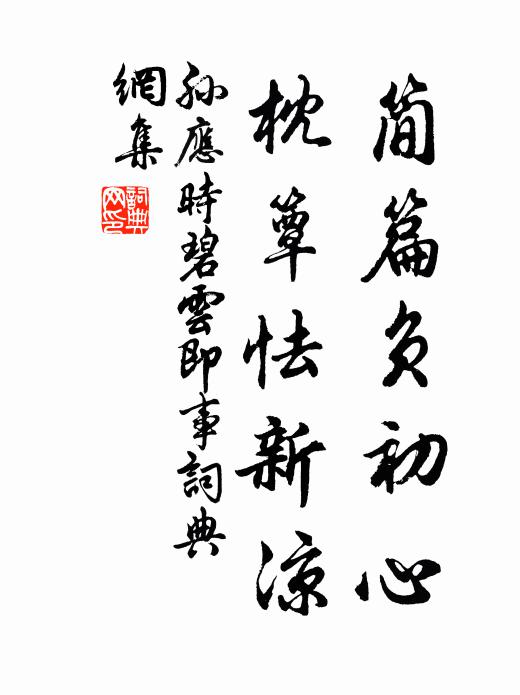 簡篇負初心
枕簟怯新涼
孫應時碧雲即事詞典
網集
詞典
网印